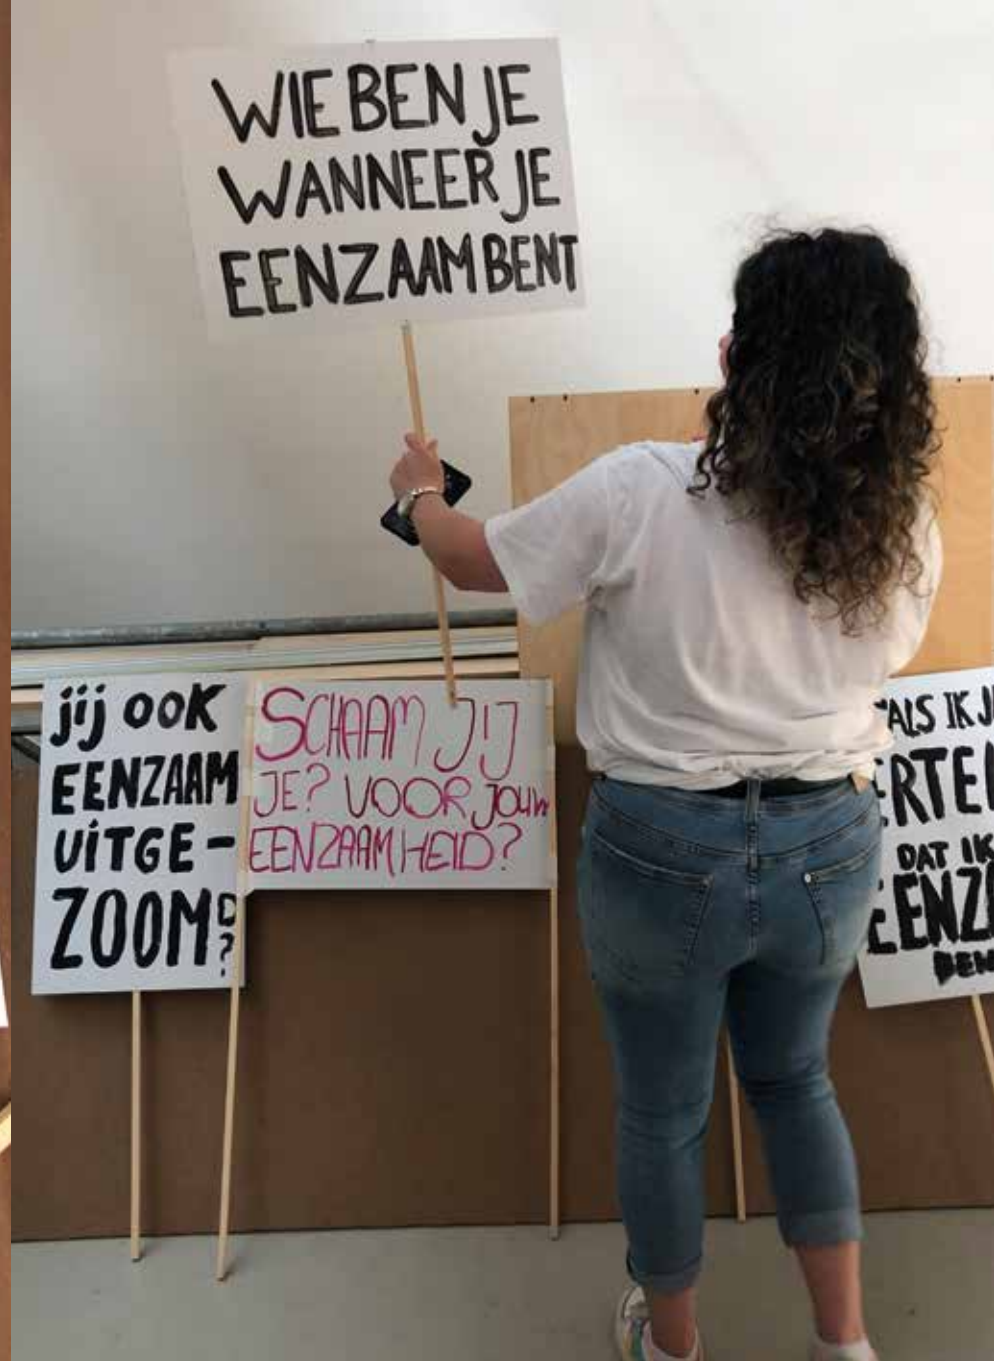 WIE BEN JE
WANNEER JE
EENZAAM BENT
jij OOK
EENZAAM
UiTGE-
ZOOMD
?
SCHAAM JIJ
JE? VOOR JOUW
EENZAAMHEID?
ALS IK J
ERTE
DAT IK
EENZ
BEN